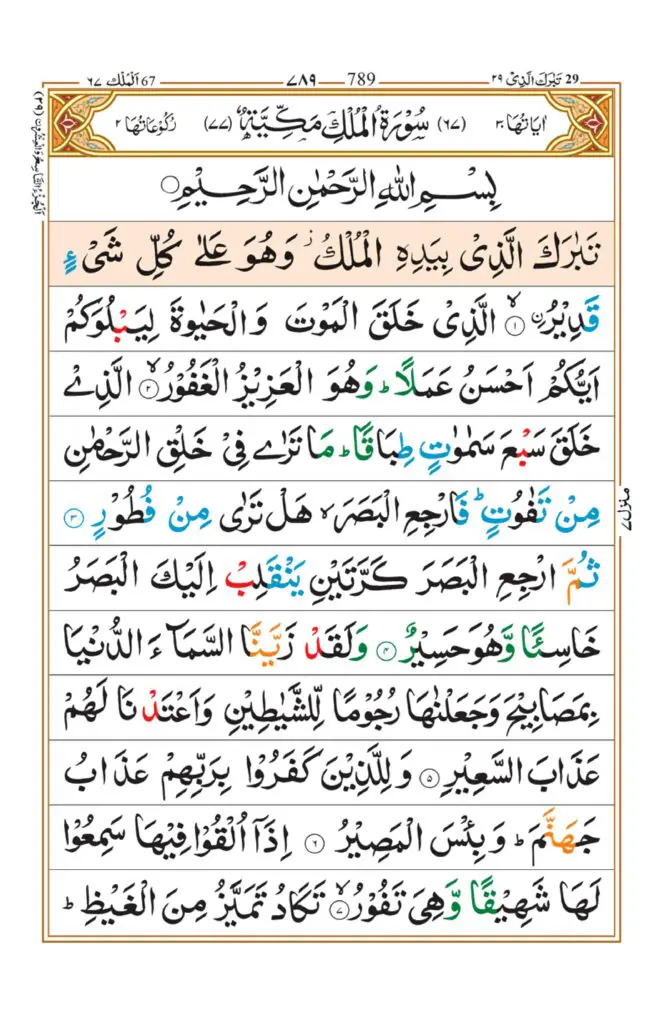 29 تَبٰرَكَ الَّذِیْ ۲۹ 789 ۷۸۹ 67 اَلْمُلْك ۶۷
اٰیَاتُهَا ۳۰ (۶۷) سُوْرَةُ الْمُلْكِ مَكِّیَّةٌ (۷۷) رُكُوْعَاتُهَا ۲
بِسْمِ اللّٰهِ الرَّحْمٰنِ الرَّحِیْمِ
تَبٰرَكَ الَّذِیْ بِیَدِهِ الْمُلْكُ ؗ وَهُوَ عَلٰى كُلِّ شَیْءٍ
قَدِیْرُ ۙﹰ ۱ الَّذِیْ خَلَقَ الْمَوْتَ وَالْحَیٰوةَ لِیَبْلُوَكُمْ
اَیُّكُمْ اَحْسَنُ عَمَلًا ؕ وَهُوَ الْعَزِیْزُ الْغَفُوْرُ ۙ ۲ الَّذِیْ
خَلَقَ سَبْعَ سَمٰوٰتٍ طِبَاقًا ؕ مَا تَرٰى فِیْ خَلْقِ الرَّحْمٰنِ
مِنْ تَفٰوُتٍ ؕ فَارْجِعِ الْبَصَرَ ۙ هَلْ تَرٰى مِنْ فُطُوْرٍ ۳
ثُمَّ ارْجِعِ الْبَصَرَ كَرَّتَیْنِ یَنْقَلِبْ اِلَیْكَ الْبَصَرُ
خَاسِئًا وَّهُوَ حَسِیْرٌ ۴ وَلَقَدْ زَیَّنَّا السَّمَآءَ الدُّنْیَا
بِمَصَابِیْحَ وَجَعَلْنٰهَا رُجُوْمًا لِّلشَّیٰطِیْنِ وَاَعْتَدْنَا لَهُمْ
عَذَابَ السَّعِیْرِ ۵ وَلِلَّذِیْنَ كَفَرُوْا بِرَبِّهِمْ عَذَابُ
جَهَنَّمَ ؕ وَبِئْسَ الْمَصِیْرُ ۶ اِذَاۤ اُلْقُوْا فِیْهَا سَمِعُوْا
لَهَا شَهِیْقًا وَّهِیَ تَفُوْرُ ۙ ۷ تَكَادُ تَمَیَّزُ مِنَ الْغَیْظِ ؕ
منزل ۷
اَلْجُزْءُ التَّاسِعُ وَالْعِشْرُوْنَ (۲۹)